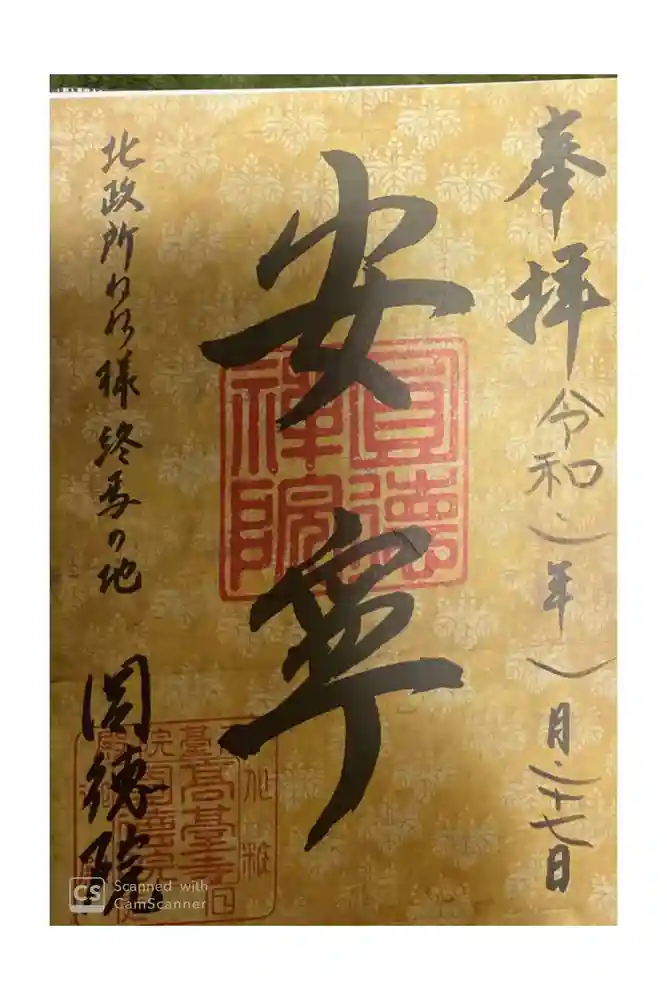 奉拝 令和二年八月二十七日
安寧
圓徳禅院
北政所ねね様終焉の地
圓徳院
高臺寺
CS Scanned with
CamScanner